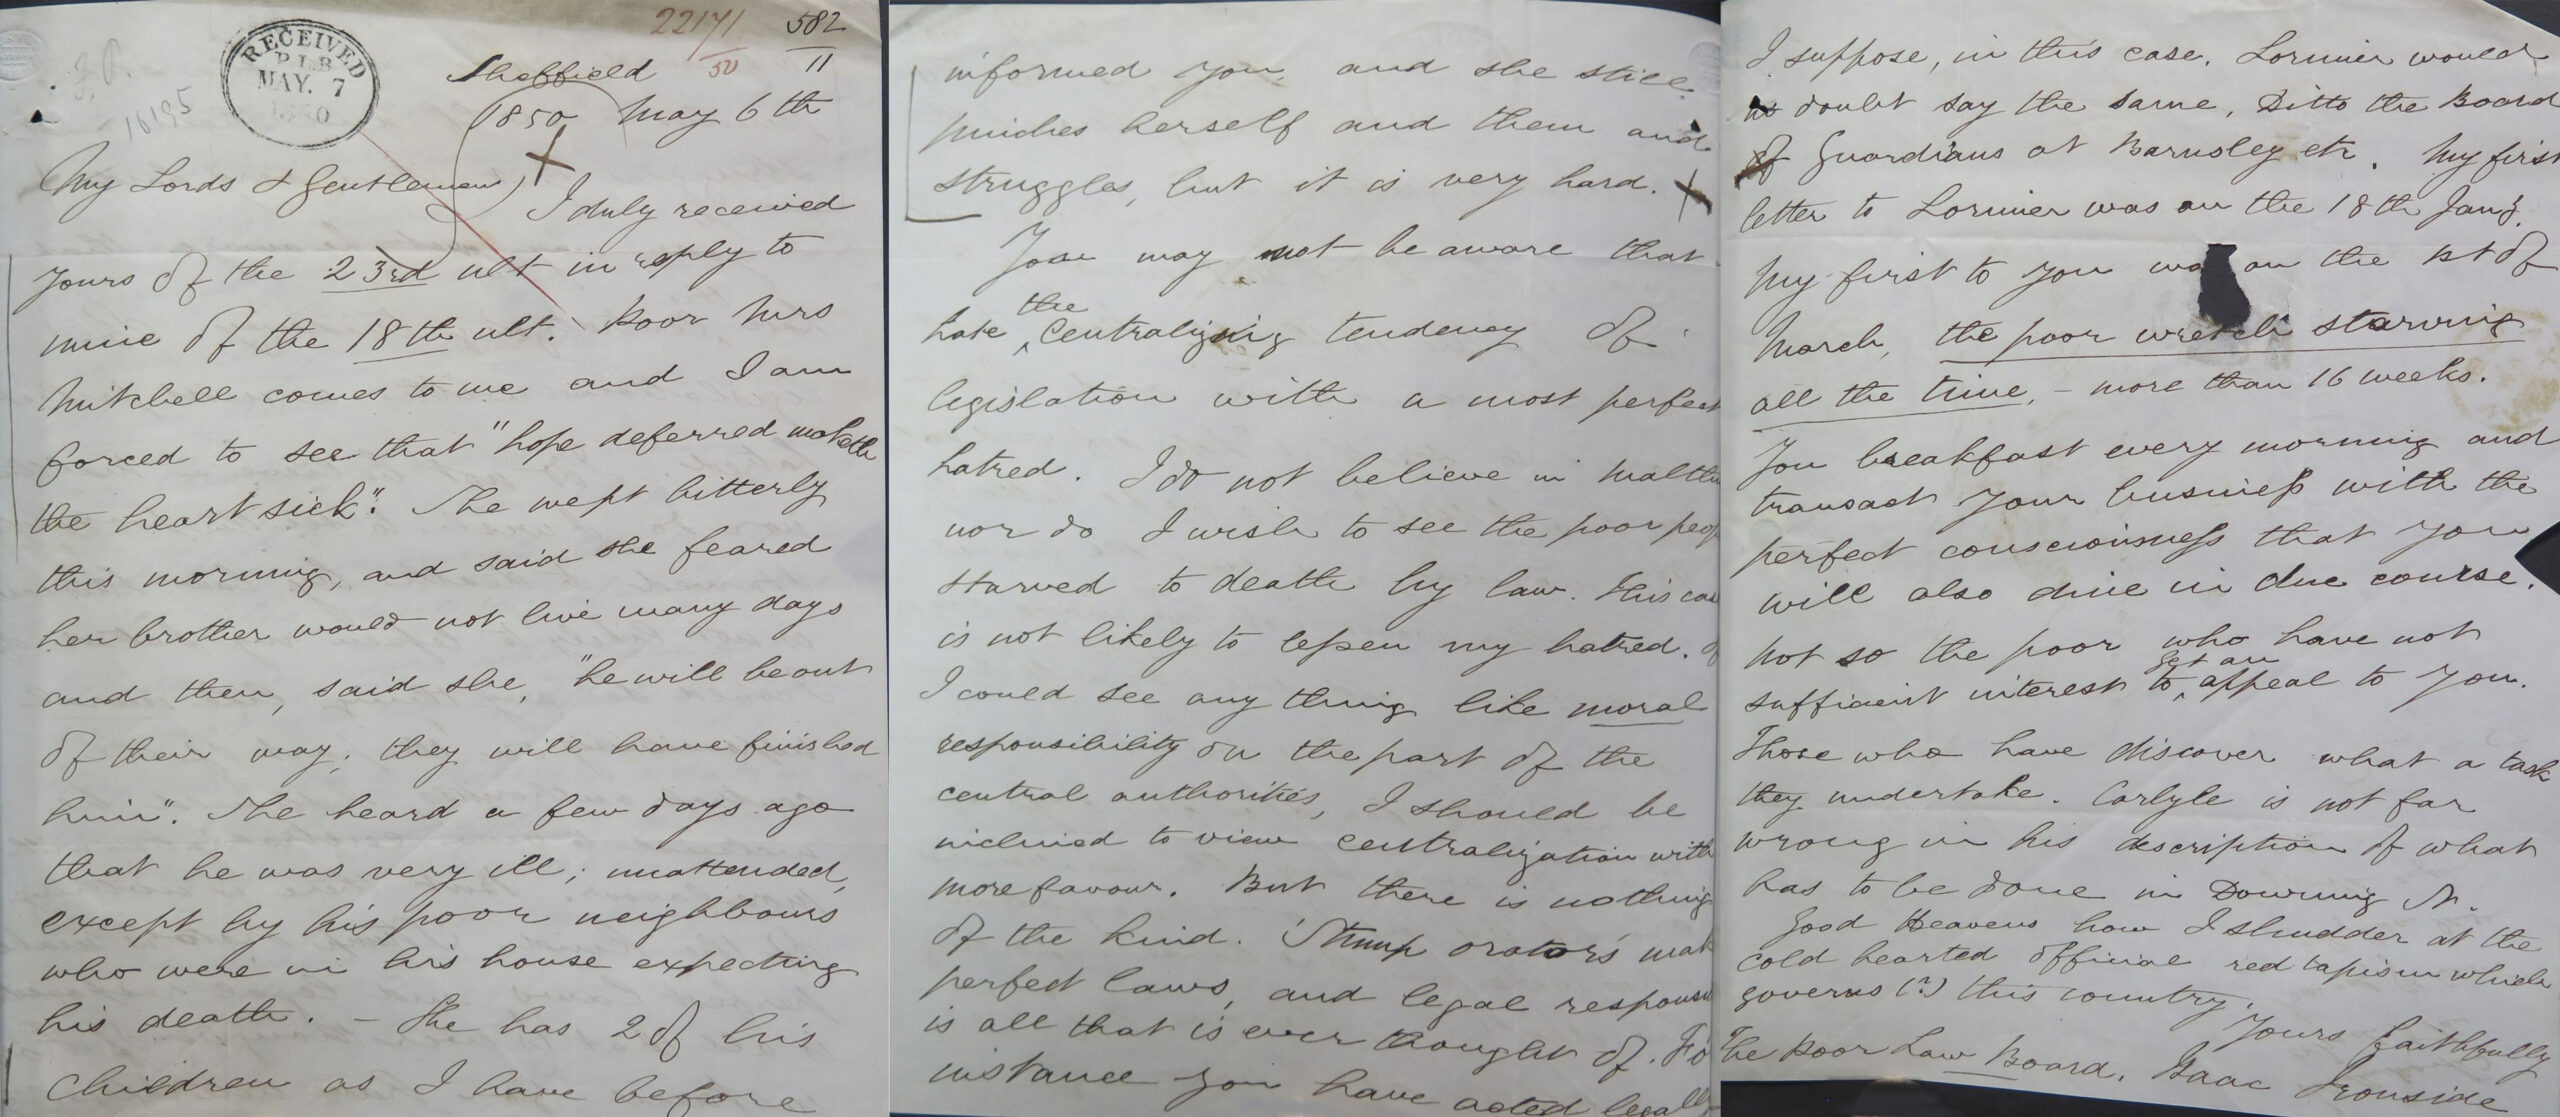 22171
50
582
11
RECEIVED
P.L.B
MAY. 7
1850
16195
Sheffield
1850 May 6th
My Lords & Gentlemen,
I duly received
yours of the 23rd ult in reply to
mine of the 18th ult. Poor Mrs
Mitchell comes to me and I am
forced to see that "hope deferred maketh
the heart sick". She wept bitterly
this morning, and said she feared
her brother would not live many days
and then, said she, "he will be out
of their way; they will have finished
him". She heard a few days ago
that he was very ill; unattended,
except by his poor neighbours
who were in his house expecting
his death. – She has 2 of his
children as I have before
informed you and she still
pinches herself and them and
struggles, but it is very hard.
You may not be aware that I
hate the centralizing tendency of
legislation with a most perfect
hatred. I do not believe in Malthus
nor do I wish to see the poor people
starved to death by law. This case
is not likely to lessen my hatred. If
I could see any thing like moral
responsibility on the part of the
central authorities, I should be
inclined to view centralization with
more favour. But there is nothing
of the kind. 'Stump orators' make
perfect laws, and legal
is all that is ever thought of. For
instance you have acted legally
I suppose, in this case. Lorimer would
no doubt say the same, Ditto the Board
of Guardians at Barnsley etc. My first
letter to Lorimer was on the 18th Jany.
My first to you was on the 1st of
March, the poor wretch starving
all the time, – more than 16 weeks.
You breakfast every morning and
transact your business with the
perfect consciousness that you
will also dine in due course.
Not so the poor who have not
sufficient interest to get an appeal to you.
Those who have discover what a task
they undertake. Carlyle is not far
wrong in his description of what
has to be done in Downing St.
Good Heavens how I shudder at the
cold hearted official red tapism which
governs (?) this country.
Yours faithfully
The Poor Law Board. Isaac Ironside